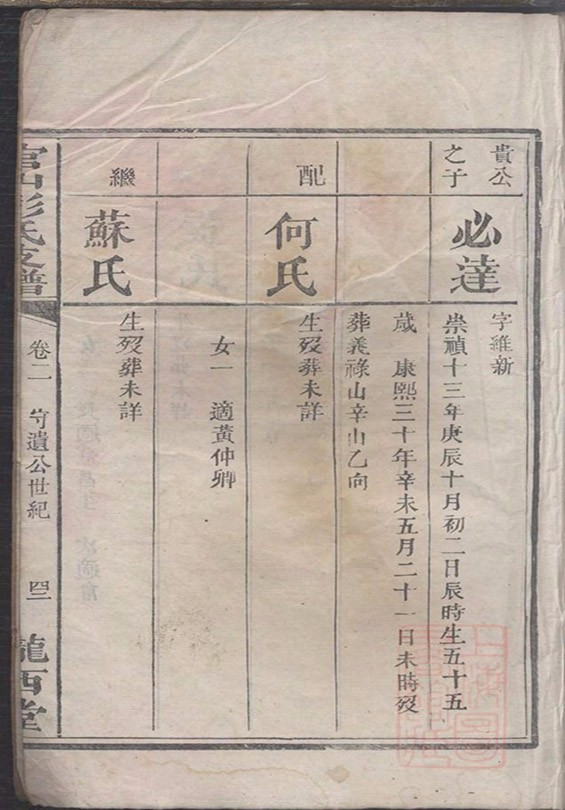 貴公之子
必達
字維新
崇禎十三年庚辰十月初二日辰時生五十五
歲 康熙三十年辛未五月二十一日未時歿
葬義祿山辛山乙向
配
何氏
生歿葬未詳
女一 適黃仲卿
繼
蘇氏
生歿葬未詳
官山彭氏支譜
卷二 守遺公世紀
隴西堂